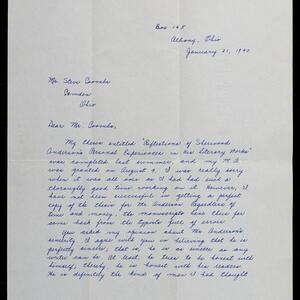 Box 148
Albany, Ohio
January 21, 1940
Mr. Steve Coombs
Camden
Ohio
Dear Mr. Coombs,
My thesis entitled "Reflections of Sherwood
Anderson's Personal Experiences in His Literary Works"
was completed last summer, and my M.A.
was granted on August 4. I was really sorry
when it was all over as I had had such a
thoroughly good time working on it. However, I
have not been successful in getting a perfect
copy of the thesis for Mr. Anderson. Regardless of
time and money, the manuscripts have thus far
come back from the typists full of errors.
You asked my opinion about Mr. Anderson's
sincerity. I agree with you in believing that he is
perfectly sincere, that is, he is as sincere as any
writer can be. At least, he tries to be honest with
himself; thereby, he is honest with his readers.
He is definitely the kind of man I had thought